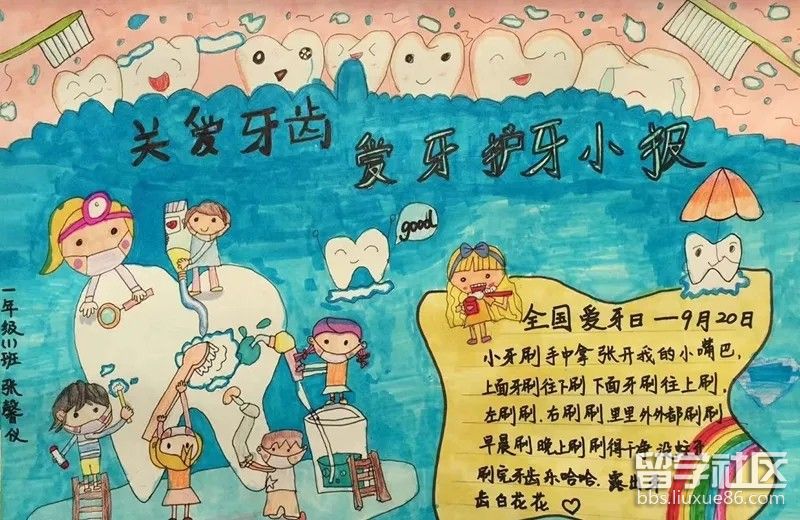 关爱牙齿
爱牙护牙小报
good
一年级(1)班 张馨仪
全国爱牙日—9月20日
小牙刷手中拿张开我的小嘴巴,
上面牙刷往下刷下面牙刷往上刷.
左刷刷.右刷刷里里外外都刷刷
早晨刷晚上刷刷得干净没蛀牙
刷完牙齿乐哈哈.露出
齿白花花
留学社区
bbs.liuxue86.com